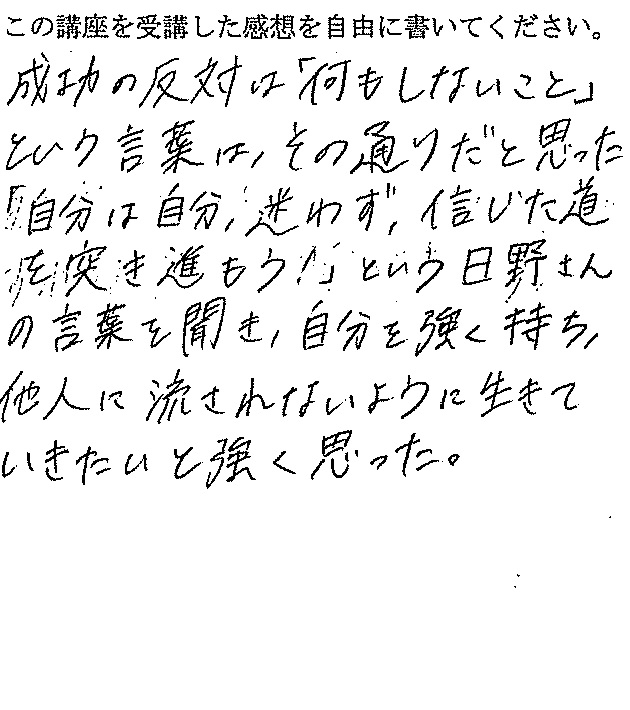 この講座を受講した感想を自由に書いてください。
成功の反対は「何もしないこと」
という言葉は、その通りだと思った
「自分は自分、迷わず、信じた道
を突き進もう！」という日野さん
の言葉を聞き、自分を強く持ち、
他人に流されないように生きて
いきたいと強く思った。